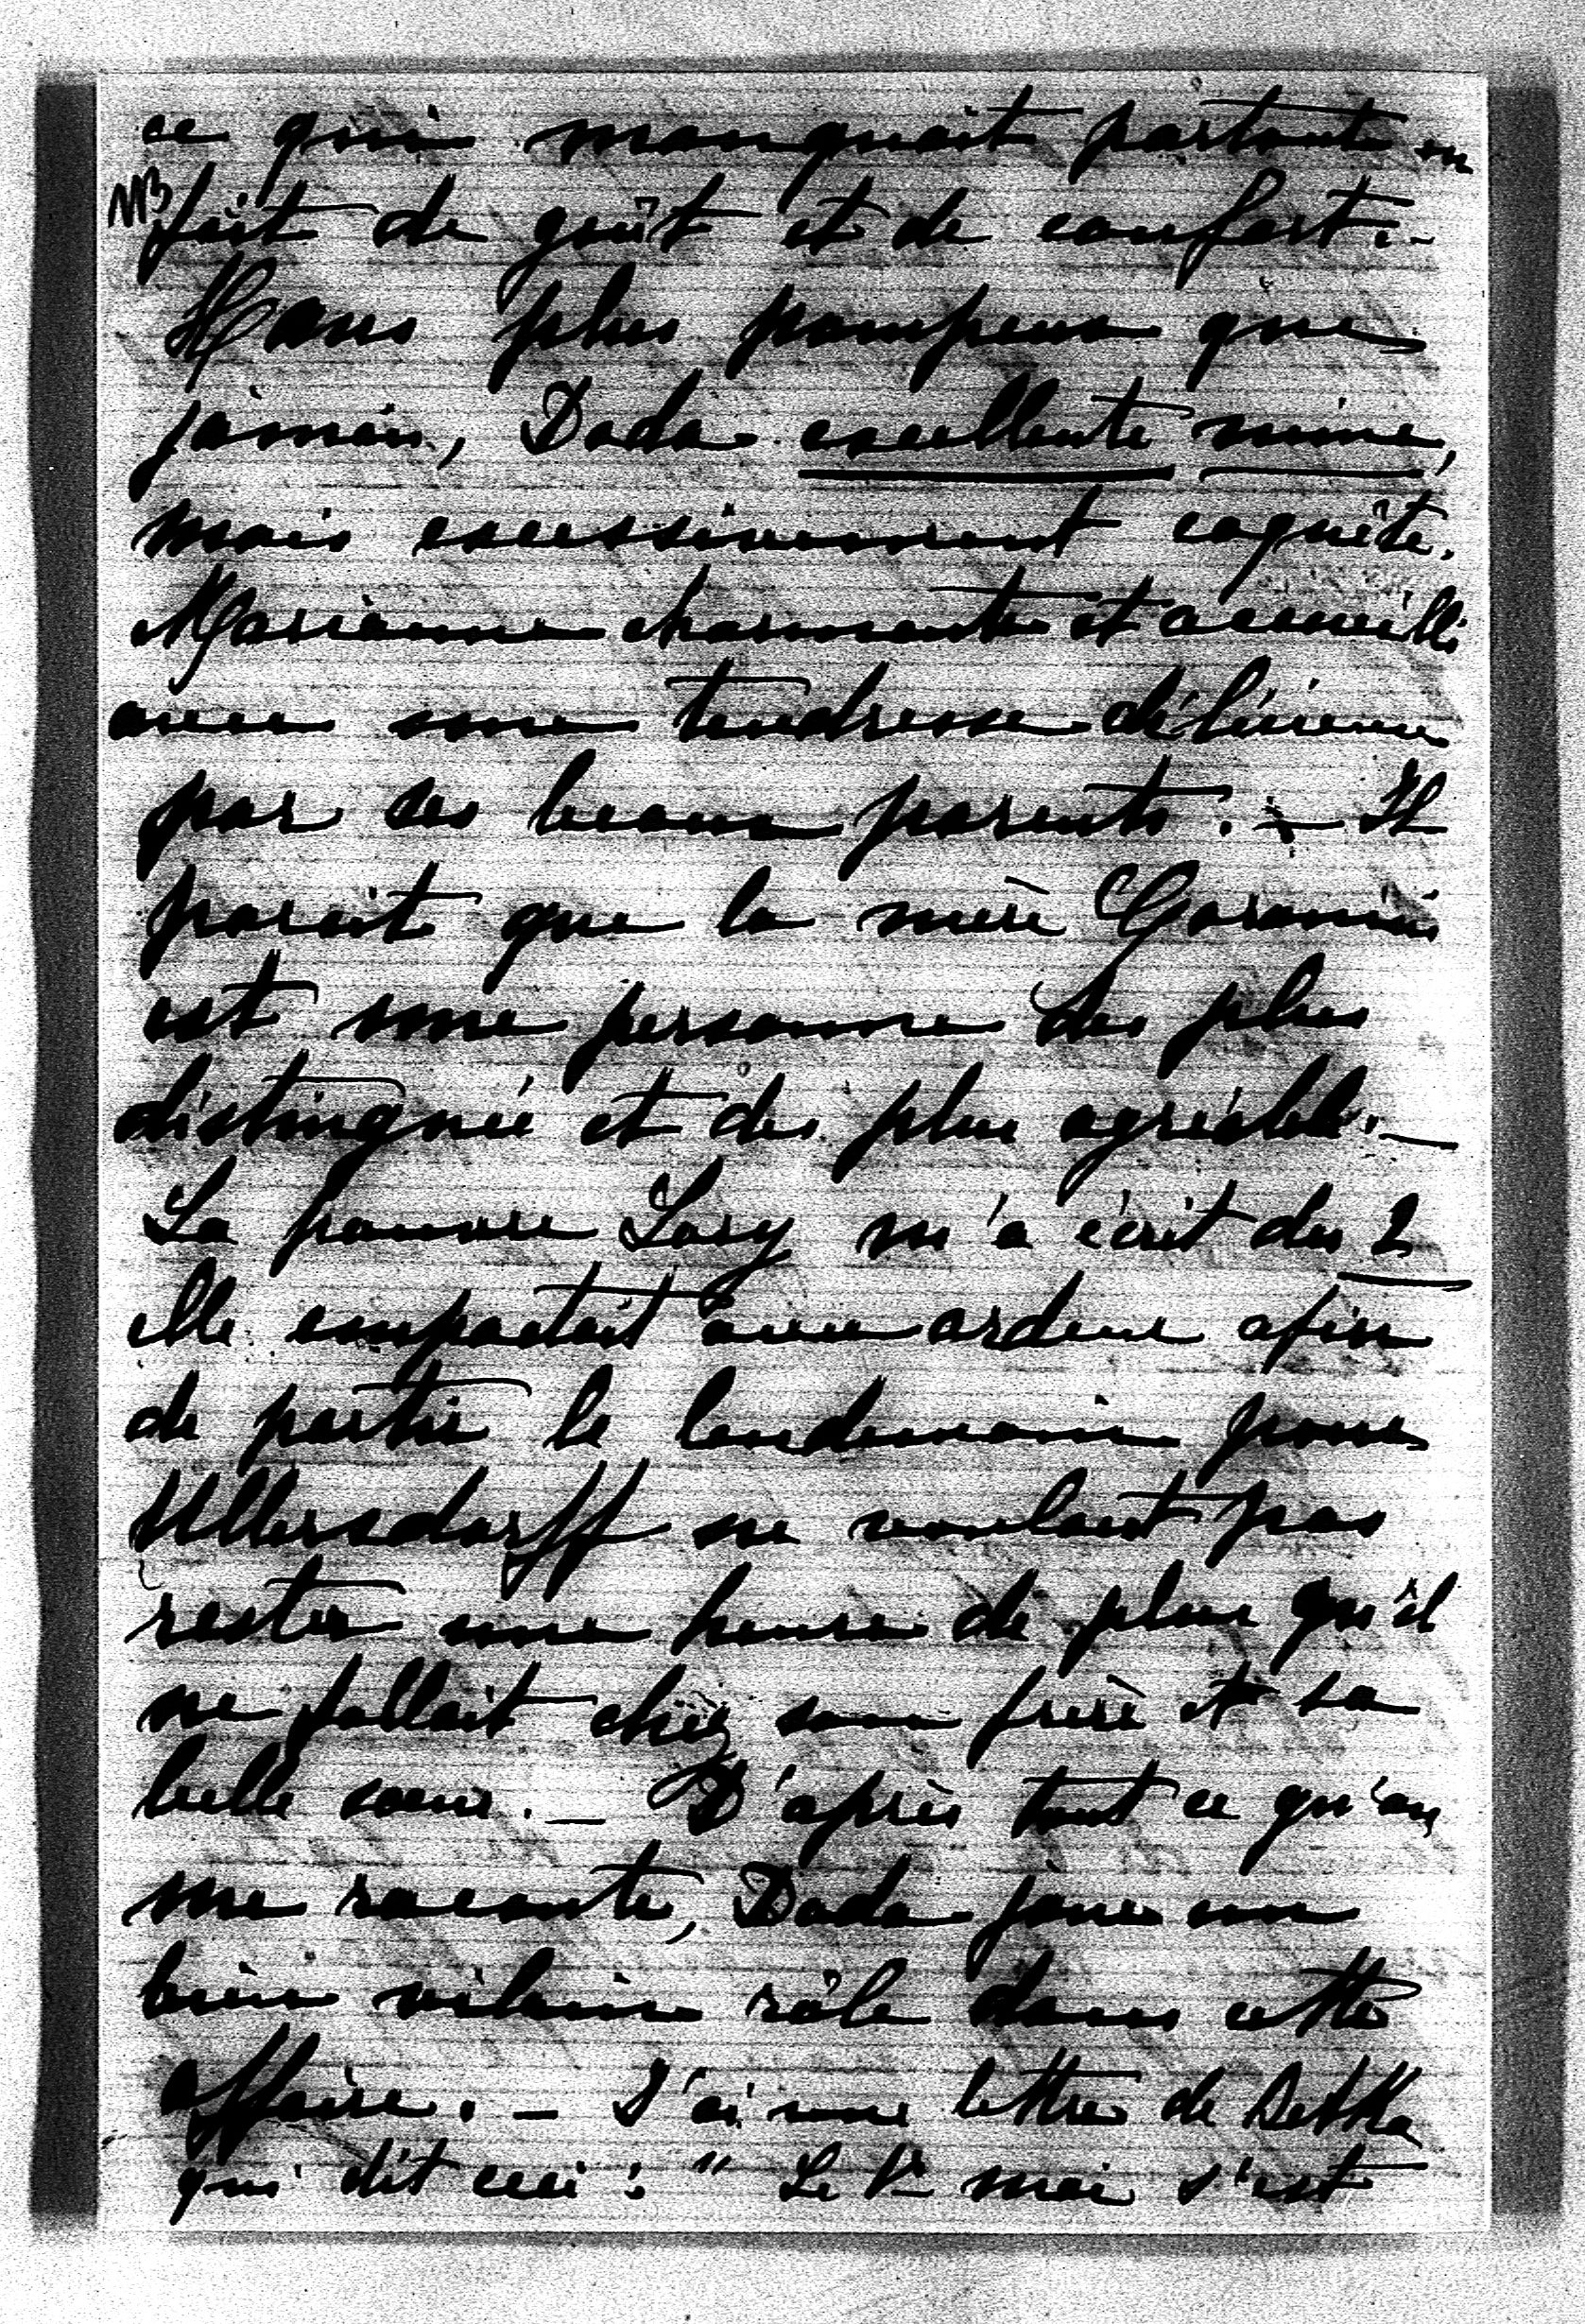 ce qui manquait partout en
NB
fait de goût et de confort.-
Hans plus pompeux que
jamais, Dada excellente mine,
mais excessivement coquète.
Marianne charmante et accueilli
avec une tendresse délicieuse
par ses beaux parents. — Il
parait que la mère
est une personne des plus
distinguée et des plus agréable. —
La pauvre Lory m'a écrit du 2
elle empactait avec ardeur afin
de partir le lendemain pour
Ullersdorff ne voulant pas
rester une heure de plus qu'il
ne fallait chez son frère et sa
belle soeur. — D'après tout ce qu'on
me raconte, Dada joue un
bien vilain rôle dans cette
affaire. — J'ai une lettre de Betka
qui dit ceci : " Le 1er mai s'est